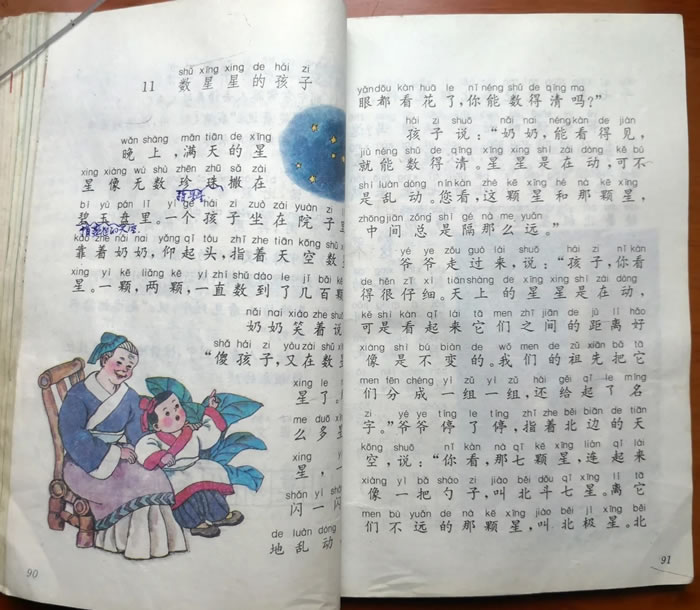 shǔ xīng xing de hái zi
11 数星星的孩子
wǎn shang mǎn tiān de xīng
晚上，满天的星
xing xiàng wú shù zhēn zhū sǎ zài
星像无数珍珠撒在
指星星
bì yù pán lǐ yí gè hái zi zuò zài yuàn zi
碧玉盘里。一个孩子坐在院子里
kào zhe nǎi nai yǎng qǐ tóu zhǐ zhe tiān kōng shǔ
靠着奶奶，仰起头，指着天空数
xing yì kē liǎng kē yì zhí shǔ dào le jǐ bǎi kē
星。一颗，两颗，一直数到了几百颗
nǎi nai xiào zhe shuō
奶奶笑着说
shǎ hái zi yòu zài shǔ xīng
“傻孩子，又在数星
xing le
星了。
me duō xīng
么多星
xing yì
星，一
shǎn yì shǎn
闪一闪
de luàn dòng
地乱动
90
yǎn dōu kàn huā le nǐ néng shǔ de qīng ma
眼都看花了，你能数得清吗？”
hái zi shuō nǎi nai néng kàn de jiàn
孩子说：“奶奶，能看得见，
jiù néng shǔ de qīng xīng xing shì zài dòng kě bú
就能数得清。星星是在动，可不
shì luàn dòng nín kàn zhè kē xīng hé nà kē xīng
是乱动。您看，这颗星和那颗星，
zhōng jiān zǒng shì gé nà me yuǎn
中间总是隔那么远。”
yé ye zǒu guò lái shuō hái zi nǐ kàn
爷爷走过来，说：“孩子，你看
de hěn zǐ xì tiān shàng de xīng xing shì zài dòng
得很仔细。天上的星星是在动，
kě shì kàn qǐ lái tā men zhī jiān de jù lí hǎo
可是看起来它们之间的距离好
xiàng shì bú biàn de wǒ men de zǔ xiān bǎ tā
像是不变的。我们的祖先把它
men fēn chéng yì zǔ yì zǔ hái gěi qǐ le míng
们分成一组一组，还给起了名
zi yé ye tíng le tíng zhǐ zhe běi biān de tiān
字。”爷爷停了停，指着北边的天
kōng shuō nǐ kàn nà qī kē xīng lián qǐ lái
空，说：“你看，那七颗星，连起来
xiàng yì bǎ sháo zi jiào běi dǒu qī xīng lí tā
像一把勺子，叫北斗七星。离它
men bù yuǎn de nà kē xīng jiào běi jí xīng běi
们不远的那颗星，叫北极星。北
91